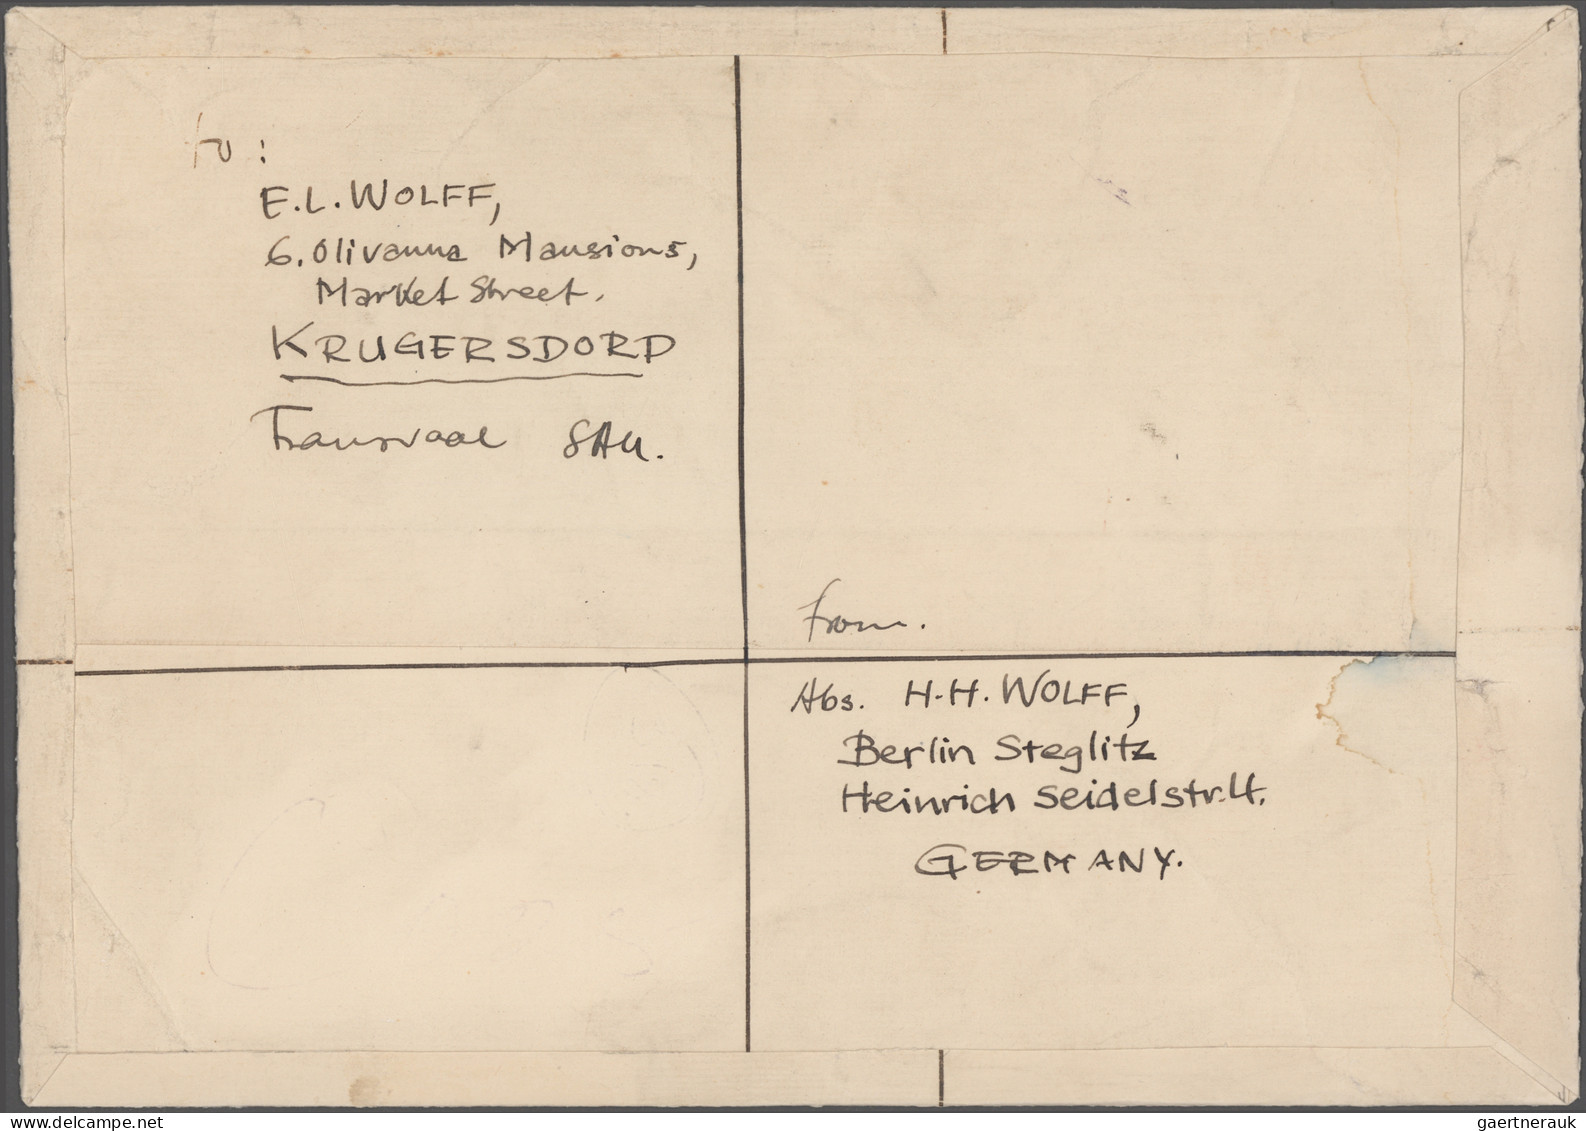 to:
E.L. WOLFF,
6. Olivanna Mansions,
Market Street.
KRUGERSDORP
Transvaal SAU.
from.
Abs. H.H. WOLFF,
Berlin Steglitz
Heinrich Seidelstr. 4.
GERMANY.
www.delcampe.net
gaertnerauk